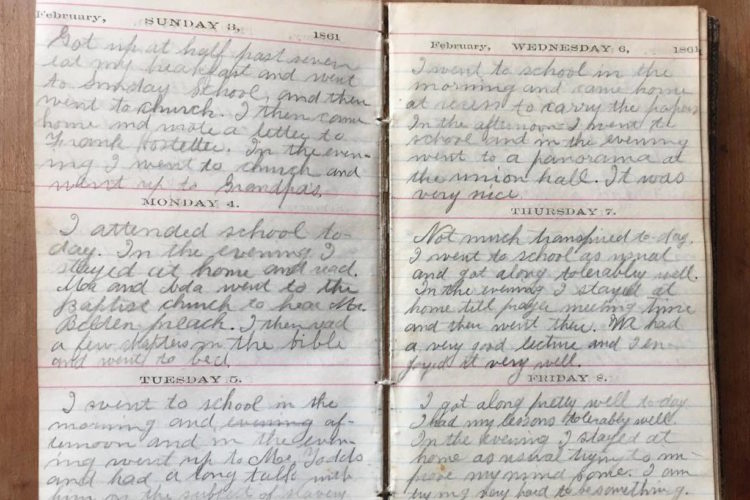 February, SUNDAY 3, 1861
Got up at half past seven
eat my breakfast and went
to Sunday School, and then
went to church. I then came
home and wrote a letter to
Frank Hostetter. In the even-
ing I went to church and
went up to Grandpas.
MONDAY 4.
I attended school to-
day. In the evening I
stayed at home and read.
Ma and Ada went to the
Baptist church to hear Mr.
preach. I then read
a few chapters in the bible
and went to bed.
TUESDAY 5.
I went to school in the
morning and evening af-
ternoon and in the even-
ing went up to Mr.
and had a long talk with
him on the subject of slavery
February, WEDNESDAY 6, 1861
I went to school in the
morning and came home
at recess to carry the papers
In the afternoon I went to
school and in the evening
went to a panorama at
the union hall. It was
very nice.
THURSDAY 7.
Not much transpired to-day.
I went to school as usual
and got along tolerably well.
In the evening I stayed at
home till prayer meeting time
and then went there. We had
a very good lecture and I en-
joyed it very well.
FRIDAY 8.
I got along pretty well to-day
I had my lessons tolerably well.
In the evening I stayed at
home as usual trying to im-
prove my mind some. I am
trying very hard to be something.